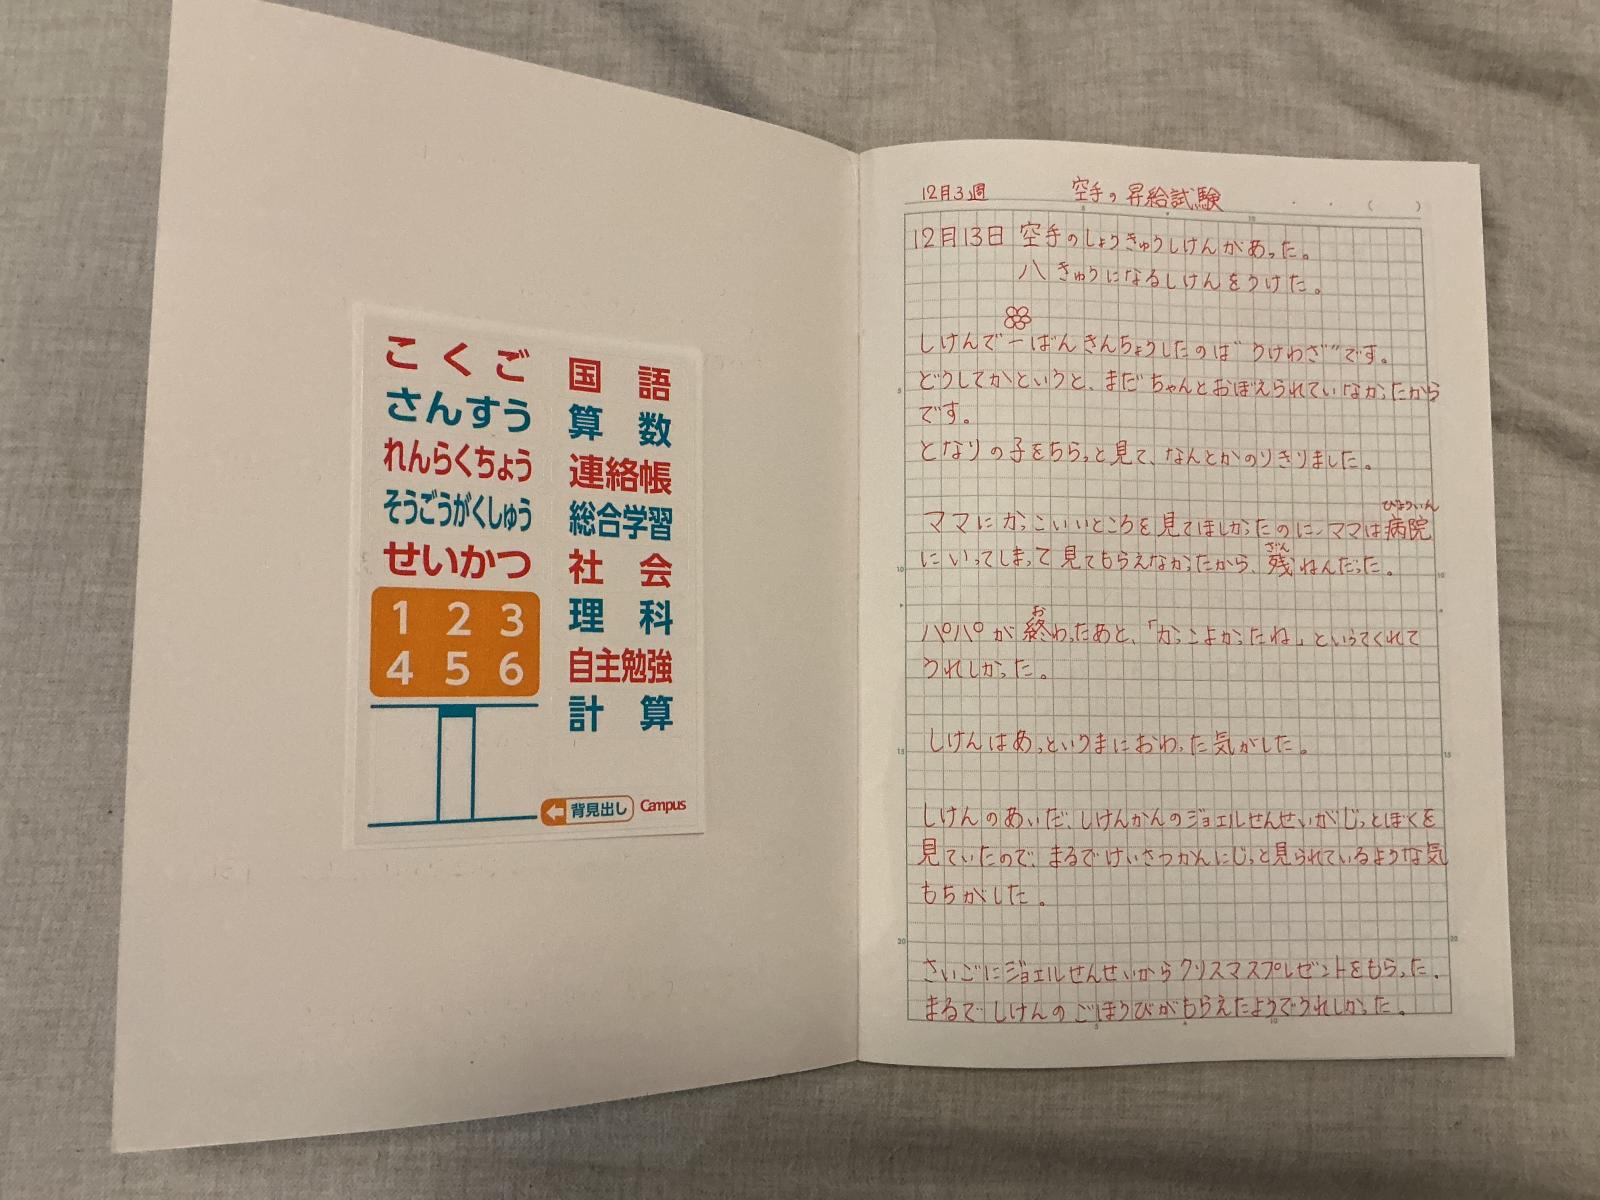 こくご 国語
さんすう 算数
れんらくちょう 連絡帳
そうごうがくしゅう 総合学習
せいかつ 社会
1 2 3 理科
4 5 6 自主勉強
計算
背見出し Campus
12月3週 空手の昇給試験 ・ ・ ( )
12月13日 空手のしょうきゅうしけんがあった。
八きゅうになるしけんをうけた。
しけんで一ばんきんちょうしたのは"うけわざ"です。
どうしてかというと、まだちゃんとおぼえられていなかったから
です。
となりの子をちらっと見て、なんとかのりきりました。
ひょういん
ママにかっこいいところを見てほしかったのに、ママは病院
ざん
にいってしまって見てもらえなかったから、残ねんだった。
お
パパが終わったあと、「かっこよかったね」といってくれて
うれしかった。
しけんはあっというまにおわった気がした。
しけんのあいだ、しけんかんのジョエルせんせいがじっとぼくを
見ていたので、まるでけいさつかんにじっと見られているような気
もちがした。
さいごにジョエルせんせいからクリスマスプレゼントをもらった。
まるでしけんのごほうびがもらえたようでうれしかった。